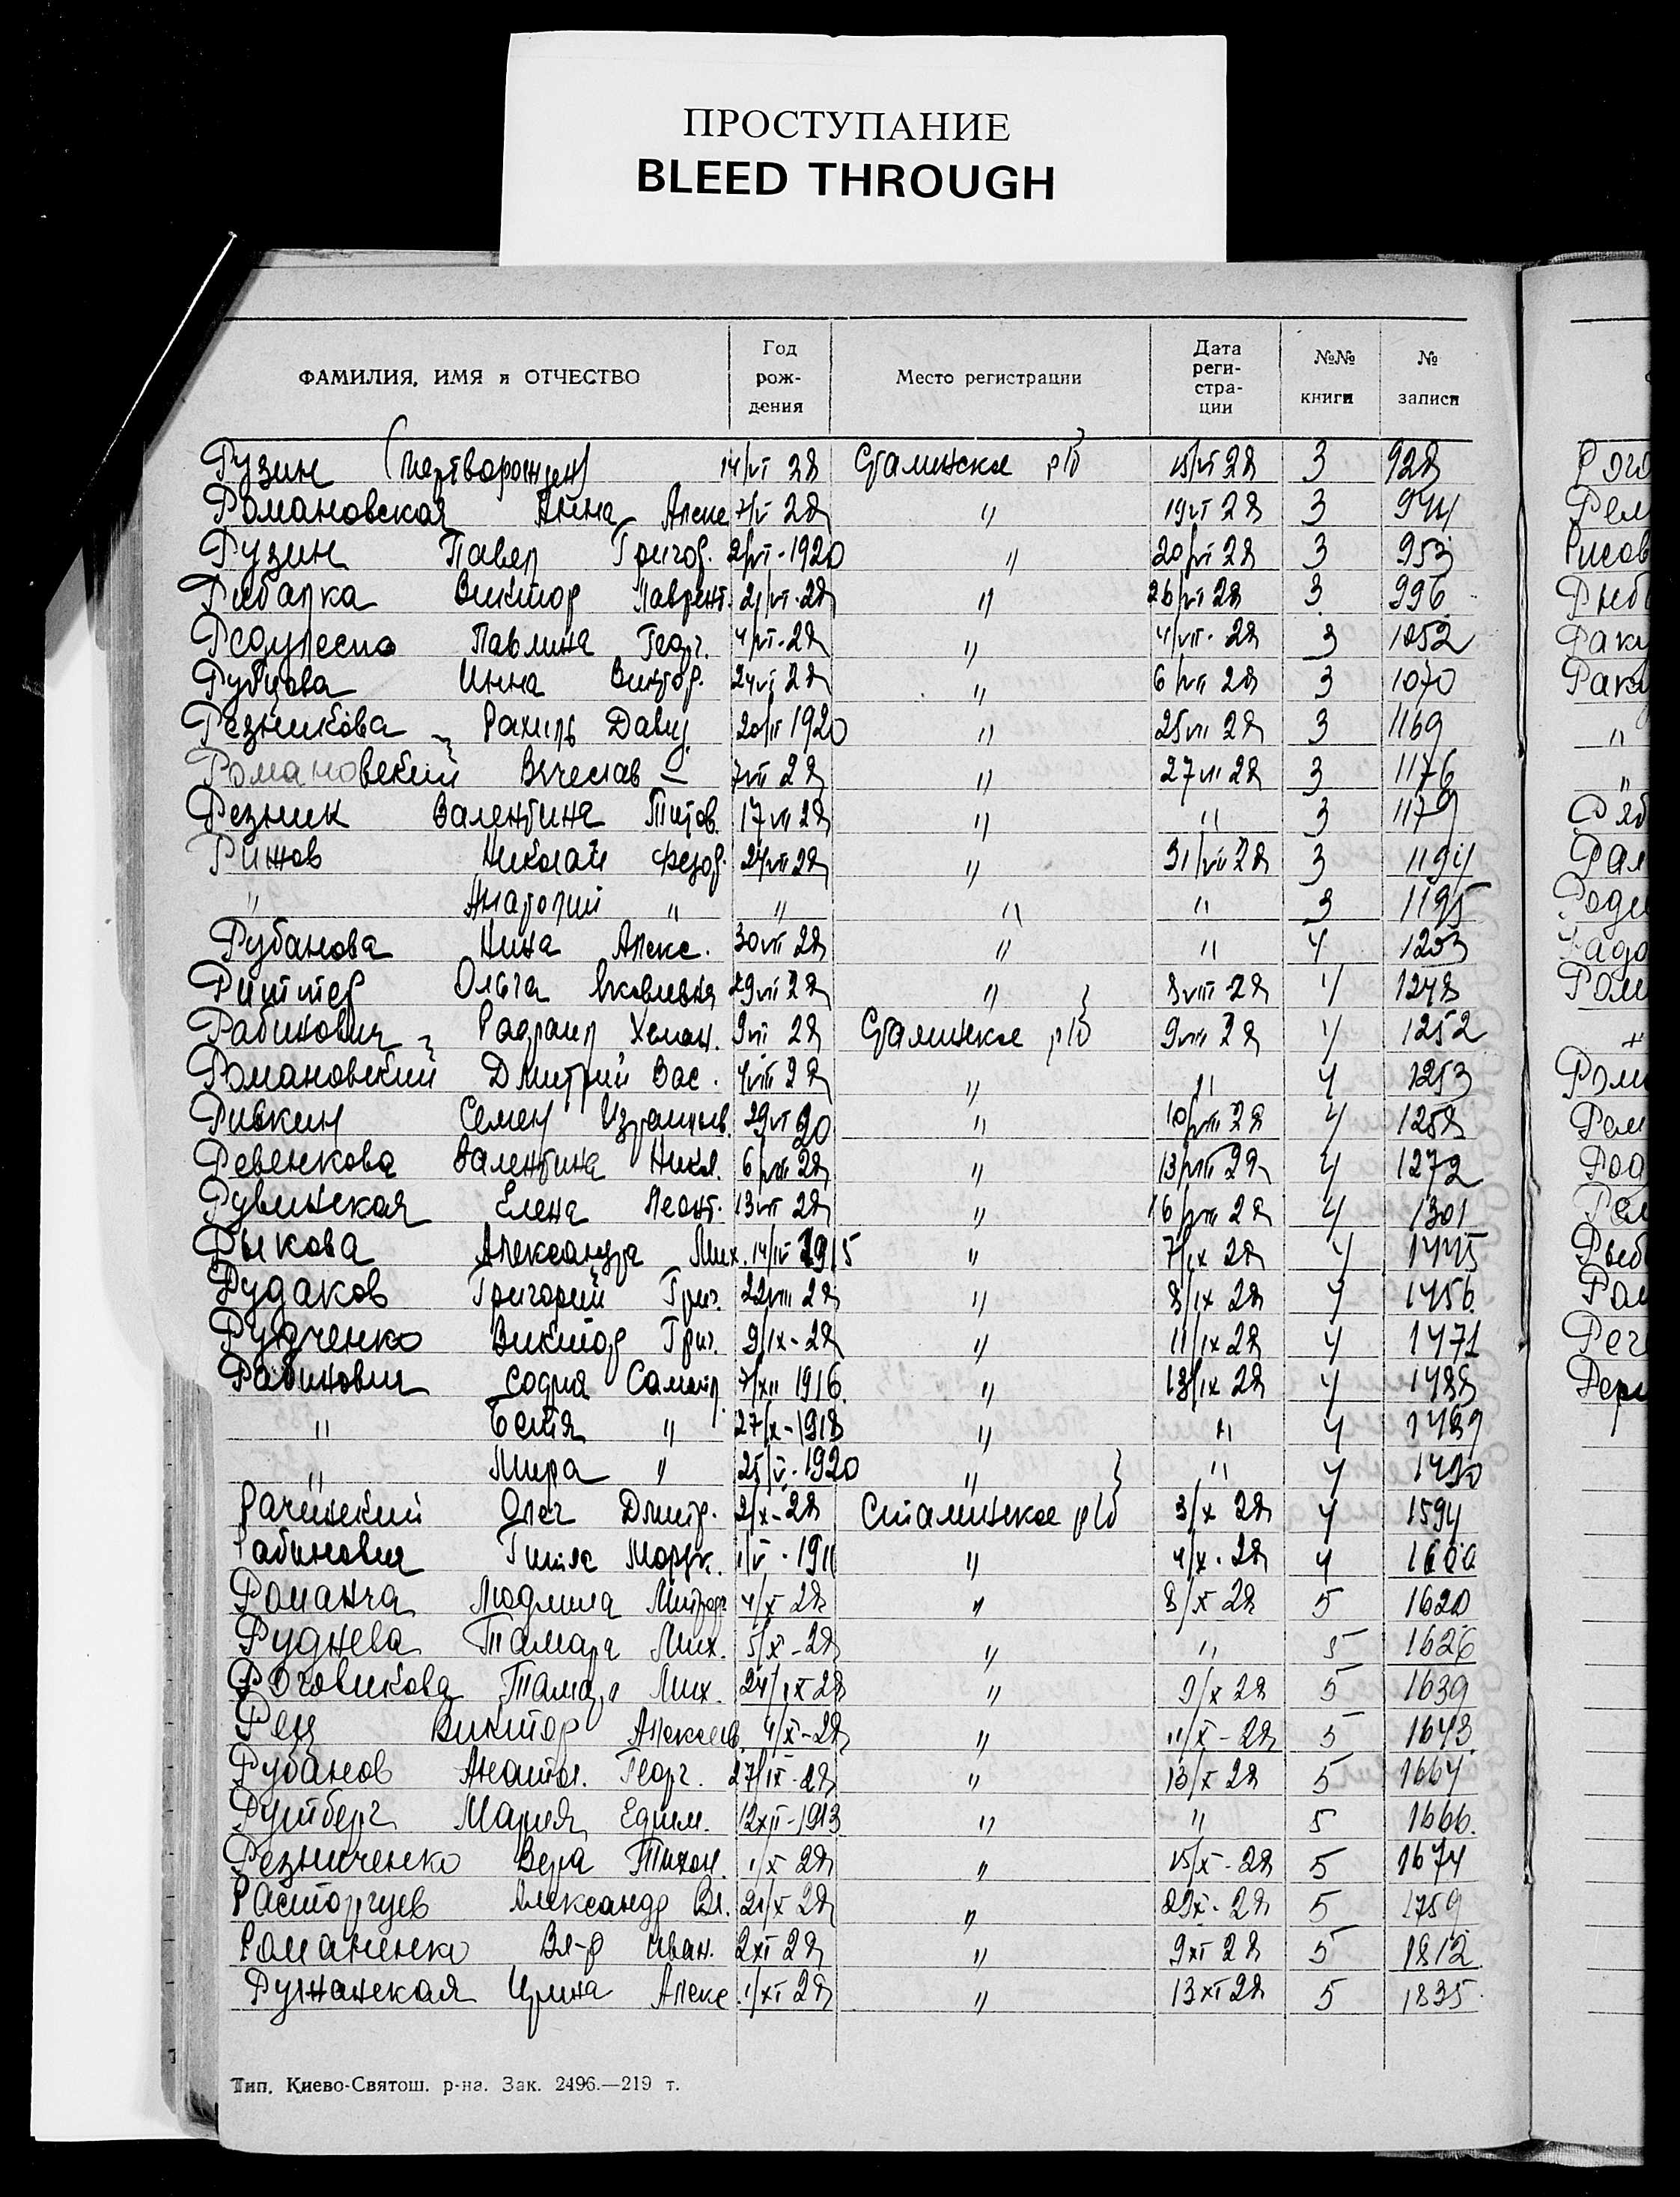 ПРОСТУПАНИЕ
BLEED THROUGH
ФАМИЛИЯ, ИМЯ и ОТЧЕСТВО Год рож-дения Место регистрации Дата реги-стра-ции №№ книги № записи
Рузин (мертворожден) 14/VI 28 Сталинское р/б 15/VI 28 3 928
Романовская Анна Алекс 7/V 28 " 19 VI 28 3 944
Рузин Павел Григор. 2/VII-1920 " 20/VI 28 3 953
Рибалка Виктор Лаврент. 21/VI-28 " 26/VI 28 3 996
Павлина Георг. 4/VI-28 " 4/VII-28 3 1052
Рубцова Инна Виктор. 24 VI 28 " 6/VII 28 3 1070
Резникова Рахиль Давид. 1920 " 25 VII 28 3 1169
Романовский Вячеслав — 7 VII 28 " 27 VII 28 3 1176
Резник Валентина Титов. 17 VII 28 " " 3 1179
Рижов Николай Федор. 24/VII 28 " 31/VII 28 3 1194
" Анатолий " " " " 3 1195
Рубанова Нина Алекс. 30 VII 28 " " 4 1203
Риттер Ольга Яковлевна 29 VII 28 " 8 VIII 28 4 1248
Рабинович Рафаил 9 VII 28 Сталинское р/б 9 VIII 28 4 1252
Романовский Дмитрий Вас. 4 VIII 28 " " 4 1253
Ривкин Семен Израилев. 29 VI 20 " 10/VIII 28 4 1258
Ревенкова Валентина Никол. 6/VIII 28 " 13/VIII 28 4 1272
Рувинская Елена Леонт. 13 VII 28 " 16/VIII 28 4 1301
Рыкова Александра Мих. 14/IV 1915 " 7/IX 28 4 1445
Рудаков Григорий Григ. 22 VIII 28 " 8/IX 28 4 1456
Рудченко Виктор Григ. 9/IX-28 " 11/IX 28 4 1471
Рабинович София Самуил. 7/XII 1916 " 13/IX 28 4 1488
" Бетя " 27/X-1918 " " 4 1489
" Мира " 25/V-1920 " " 4 1490
Рачинский Олег Дмитр. 2/X-28 Сталинское р/б 3/X 28 4 1594
Рабинович Гитля Мордк. 1/V-1911 " 4/X-28 4 1600
Романча Людмила Митроф. 4/X 28 " 8/X 28 5 1620
Руднева Тамара Мих. 5/X-28 " " 5 1626
Роговикова Тамара Мих. 24/IX 28 " 9/X 28 5 1639
Рец Виктор Алексеев. 4/X-28 " 11/X-28 5 1643
Рубанов Анатол. Георг. 27/IX-28 " 13/X 28 5 1664
Рутберг Мария Ефим. 12 XII-1913 " " 5 1666
Резниченко Вера Тихон. 1/X 28 " 15/X-28 5 1674
Расторгуев Александр Вл. 21/X 28 " 29 X-28 5 1759
Романенко Вл-р Иван. 2 XI 28 " 9 XI 28 5 1812
Ружанская Ирина Алекс 1/XI 28 " 13 XI 28 5 1835
Тип. Киево-Святош. р-на. Зак. 2496.—219 т.